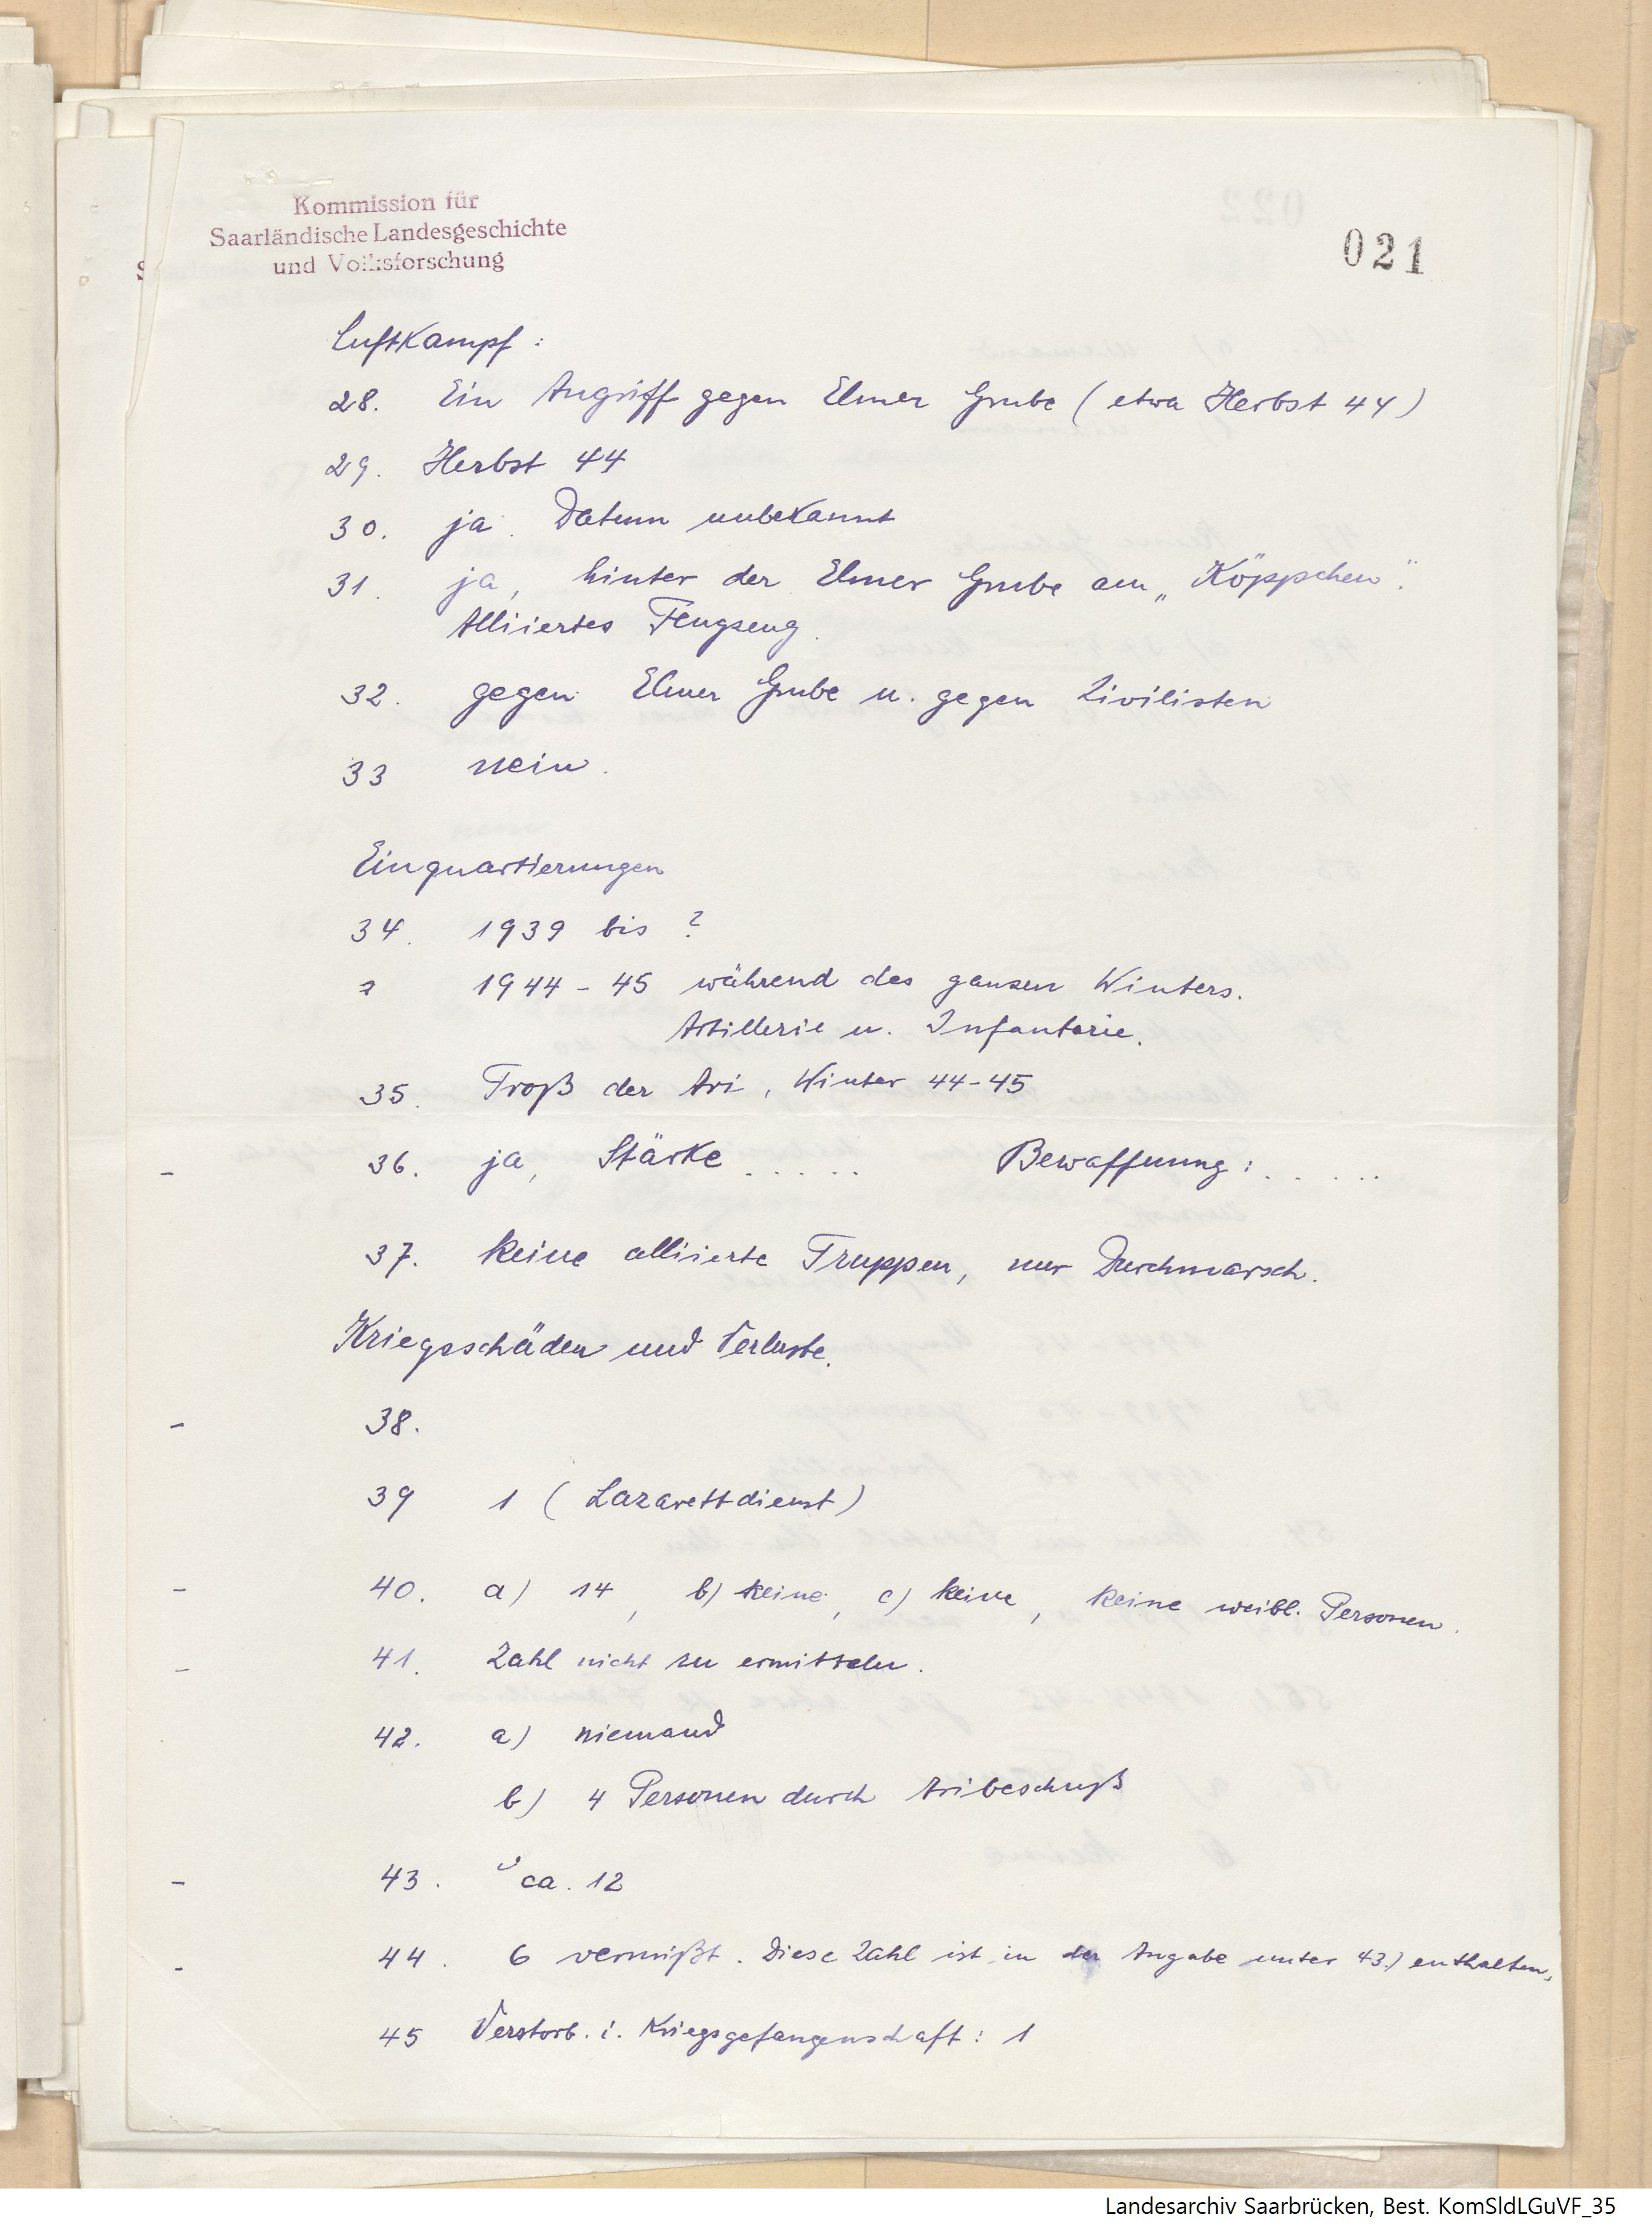 Kommission für
Saarländische Landesgeschichte
und Volksforschung
021
Luftkampf:
28. Ein Angriff gegen Elmer Grube (etwa Herbst 44)
29. Herbst 44
30. ja. Datum unbekannt
31. ja, hinter der Elmer Grube am „Köppchen".
Alliiertes Flugzeug.
32. gegen Elmer Grube u. gegen Zivilisten
33 nein.
Einquartierungen
34. 1939 bis ?
1944-45 während des ganzen Winters.
Artillerie u. Infanterie.
35. Troß der Ari, Winter 44-45
- 36. ja, Stärke ..... Bewaffnung: .....
37. Keine alliierte Truppen, nur Durchmarsch.
Kriegsschäden und Verluste.
- 38.
39 1 (Lazarettdienst)
- 40. a) 14, b) keine, c) keine, keine weibl. Personen.
- 41. Zahl nicht zu ermitteln.
42. a) niemand
b) 4 Personen durch Aribeschuß
- 43. ca. 12
- 44. 6 vermißt. Diese Zahl ist in der Angabe unter 43.) enthalten.
45 Verstorb. i. Kriegsgefangenschaft: 1
Landesarchiv Saarbrücken, Best. KomSldLGuVF_35